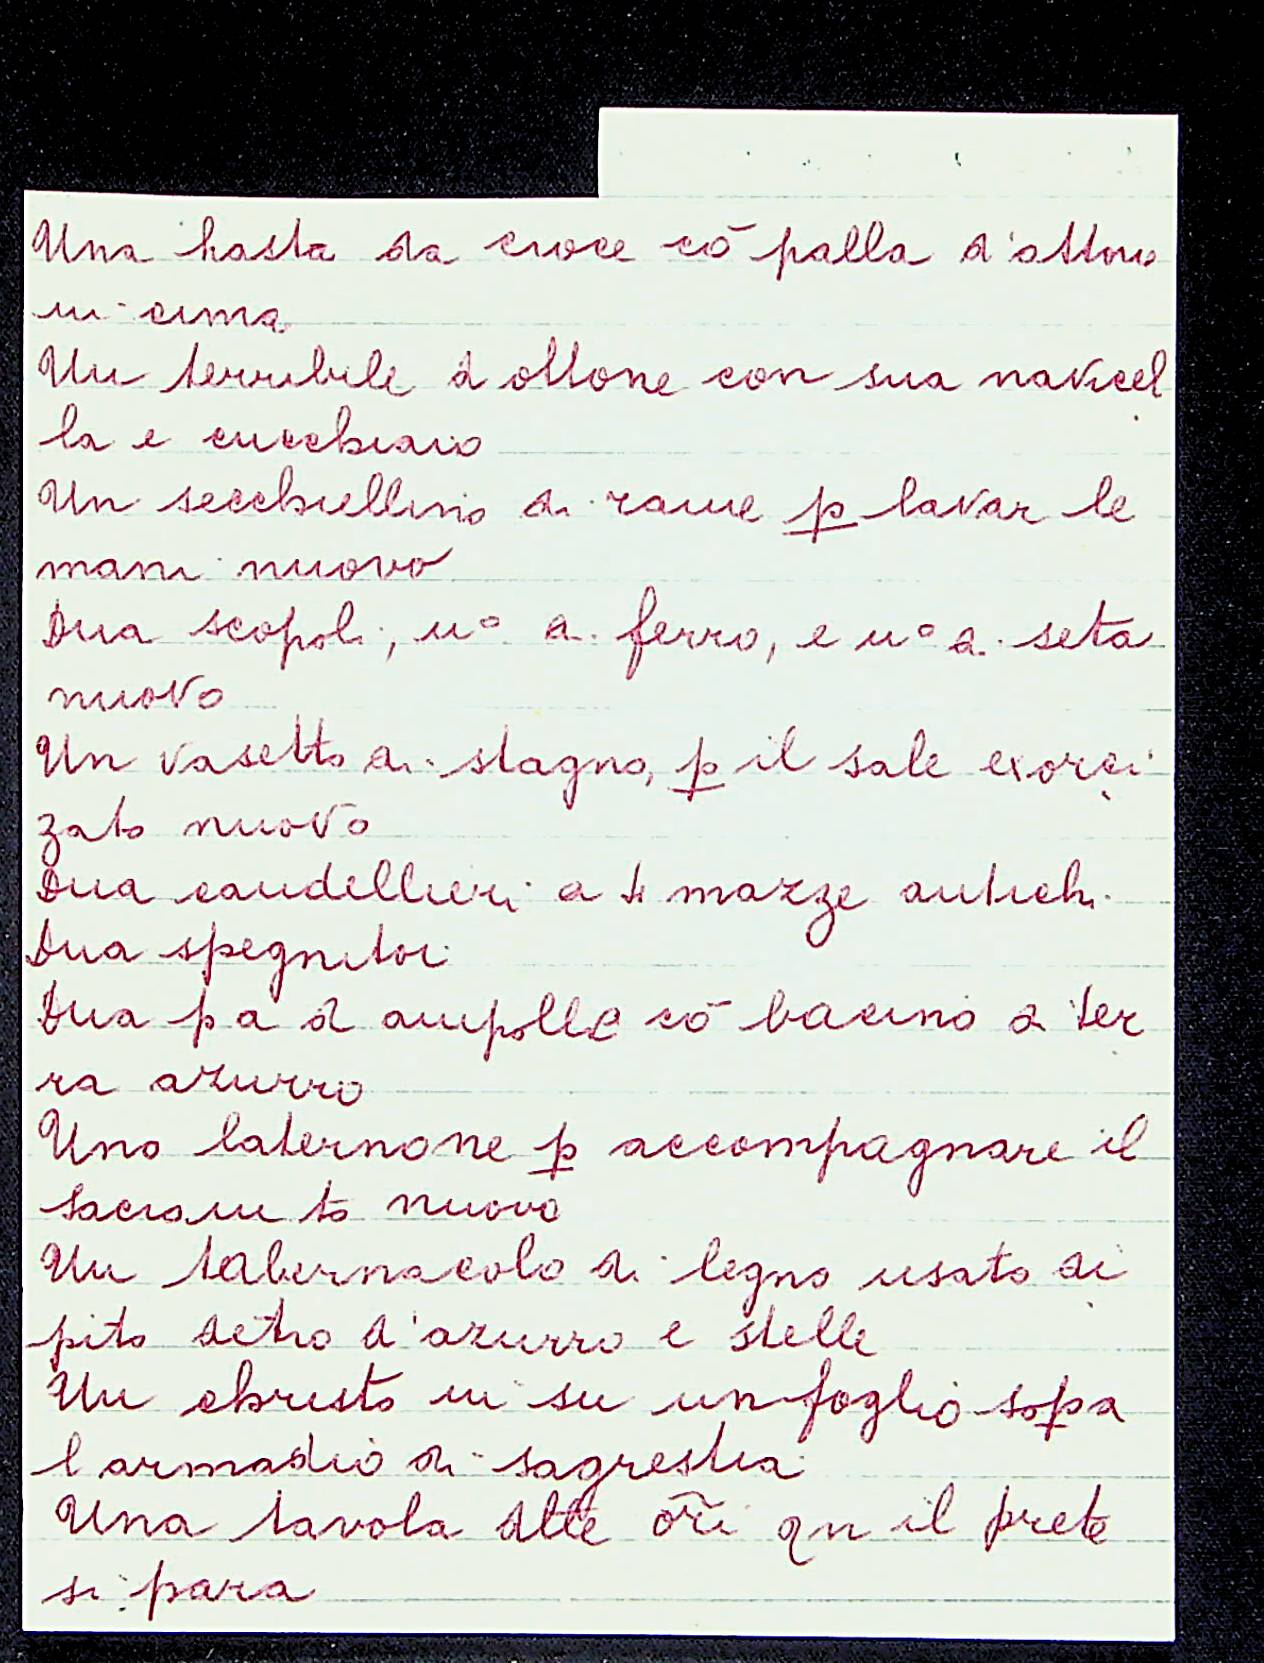 Una hasta da croce cō palla d'ottone
in cima
Un terribile d ottone con sua navicel
la e cucchiaio
Un secchiellino di rame p lavar le
mani nuovo
Dua scopoli, uº di ferro, e uº di seta
nuovo
Un vasetto di stagno, p il sale exorci
zato nuovo
Dua candellieri a 4 mazze antichi
Dua spegnitoi
Dua pa d ampolle cō bacino d ter
ra azurro
Uno laternone p accompagnare il
sacramto nuovo
Un tabernacolo di legno usato di
pito detro d'azurro e stelle
Un christo in su un foglio sopa
l armadio di sagrestia
Una tavola dtte ōri qn il prete
si para